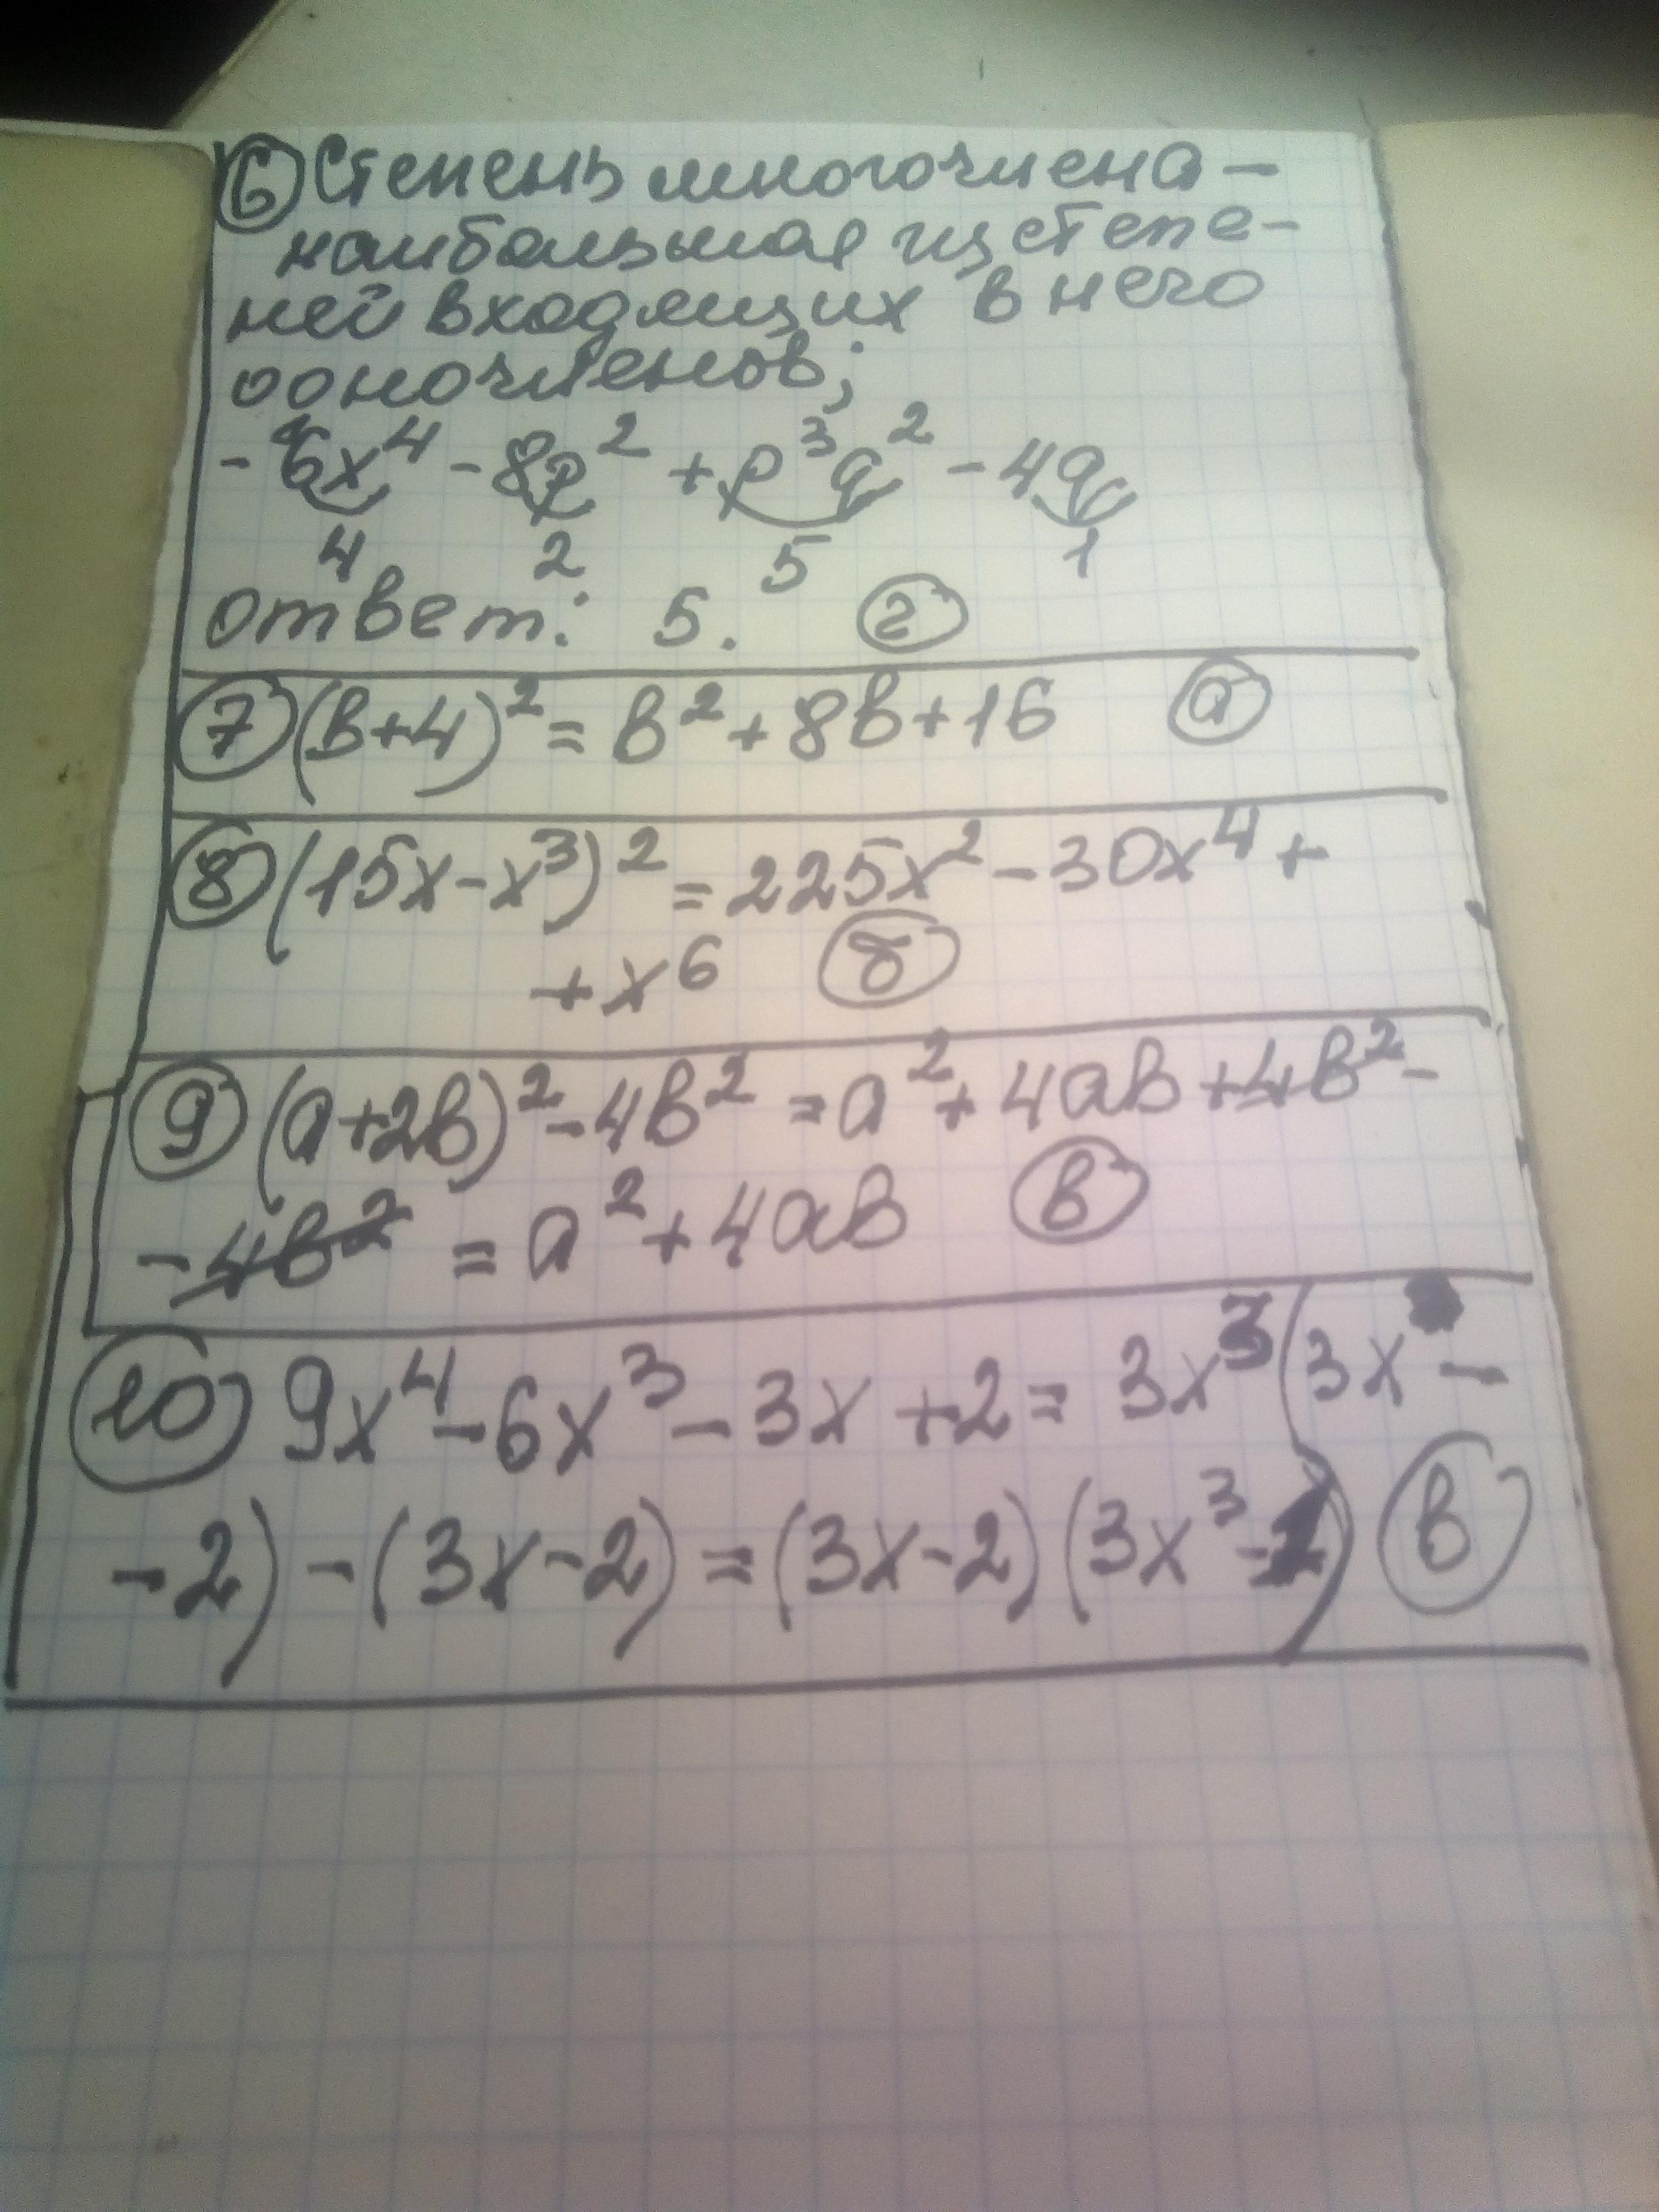 6 Степень многочлена –
наибольшая из степе-
ней входящих в него
одночленов;
- 6x⁴ - 8p² + p³q² - 4q
4 2 5 1
ответ: 5. г
7 (b+4)² = b² + 8b + 16 а
8 (15x - x³)² = 225x² - 30x⁴ +
+ x⁶ б
9 (a+2b)² - 4b² = a² + 4ab + 4b² -
- 4b² = a² + 4ab в
10 9x⁴ - 6x³ - 3x + 2 = 3x³(3x -
- 2) - (3x - 2) = (3x - 2)(3x³ - 1) в